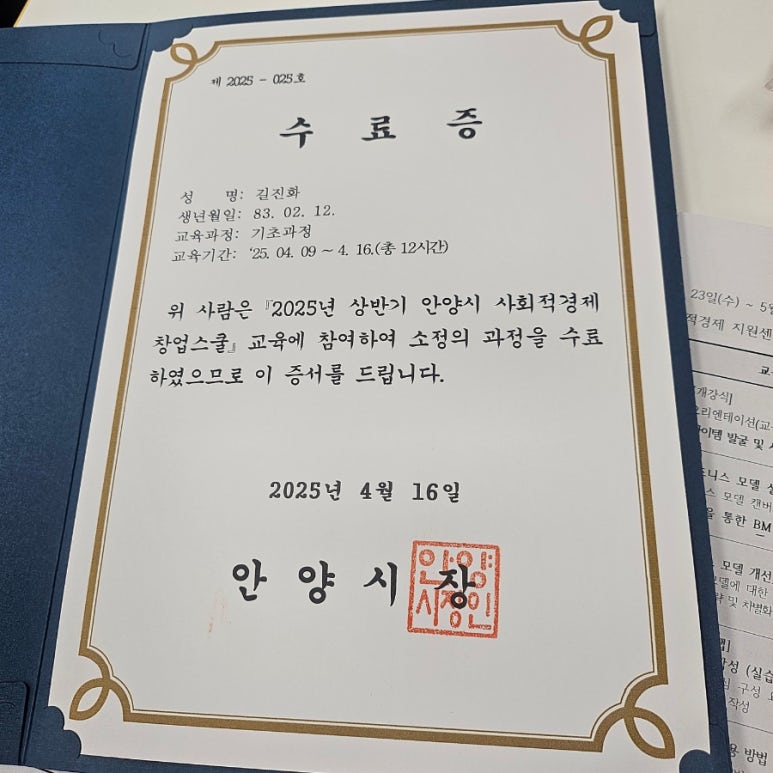 제 2025 - 025호
수 료 증
성 명: 길진화
생년월일: 83. 02. 12.
교육과정: 기초과정
교육기간: '25. 04. 09 ~ 4. 16.(총 12시간)
위 사람은 『2025년 상반기 안양시 사회적경제
창업스쿨』 교육에 참여하여 소정의 과정을 수료
하였으므로 이 증서를 드립니다.
2025년 4월 16일
안 양 시 장
안양
시장인
23일(수) ~ 5월
적경제 지원센
교
개강식]
오리엔테이션(교
아이템 발굴 및
즈니스 모델
스 모델 캔버
을 통한 BM
모델 개선
모델에 대한
및 차별화
작성 (실습
구성
작성
용 방법